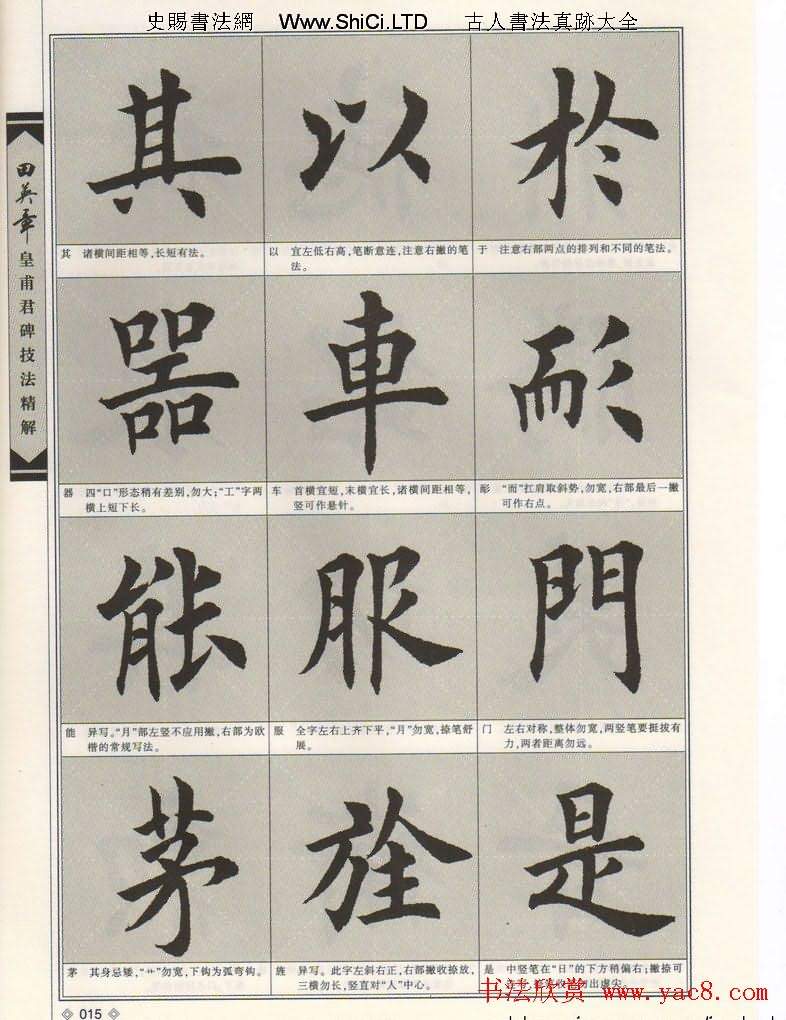 史賜書法網 Www.ShiCi.LTD 古人書法真跡大全
田英章
皇甫君碑技法精解
其 以 於
其 诸横间距相等,长短有法。
以 宜左低右高,笔断意连,注意右撇的笔
法。
于 注意右部两点的排列和不同的笔法。
器 車 耏
器 四“口”形态稍有差别,勿大;“工”字两
横上短下长。
车 首横宜短,末横宜长,诸横间距相等,
竖可作悬针。
耏 “而”扛肩取斜势,勿宽,右部最后一撇
可作右点。
能 服 門
能 异写。“月”部左竖不应用撇,右部为欧
楷的常规写法。
服 全字左右上齐下平,“月”勿宽,捺笔舒
展。
门 左右对称,整体勿宽,两竖笔要挺拔有
力,两者距离勿远。
茅 旌 是
茅 其身忌矮,“艹”勿宽,下钩为弧弯钩。
旌 异写。此字左斜右正,右部撇收捺放,
三横勿长,竖直对“人”中心。
是 中竖笔在“日”的下方稍偏右;撇捺可
勿出虚尖。
书法欣赏 www.yac8.com
015